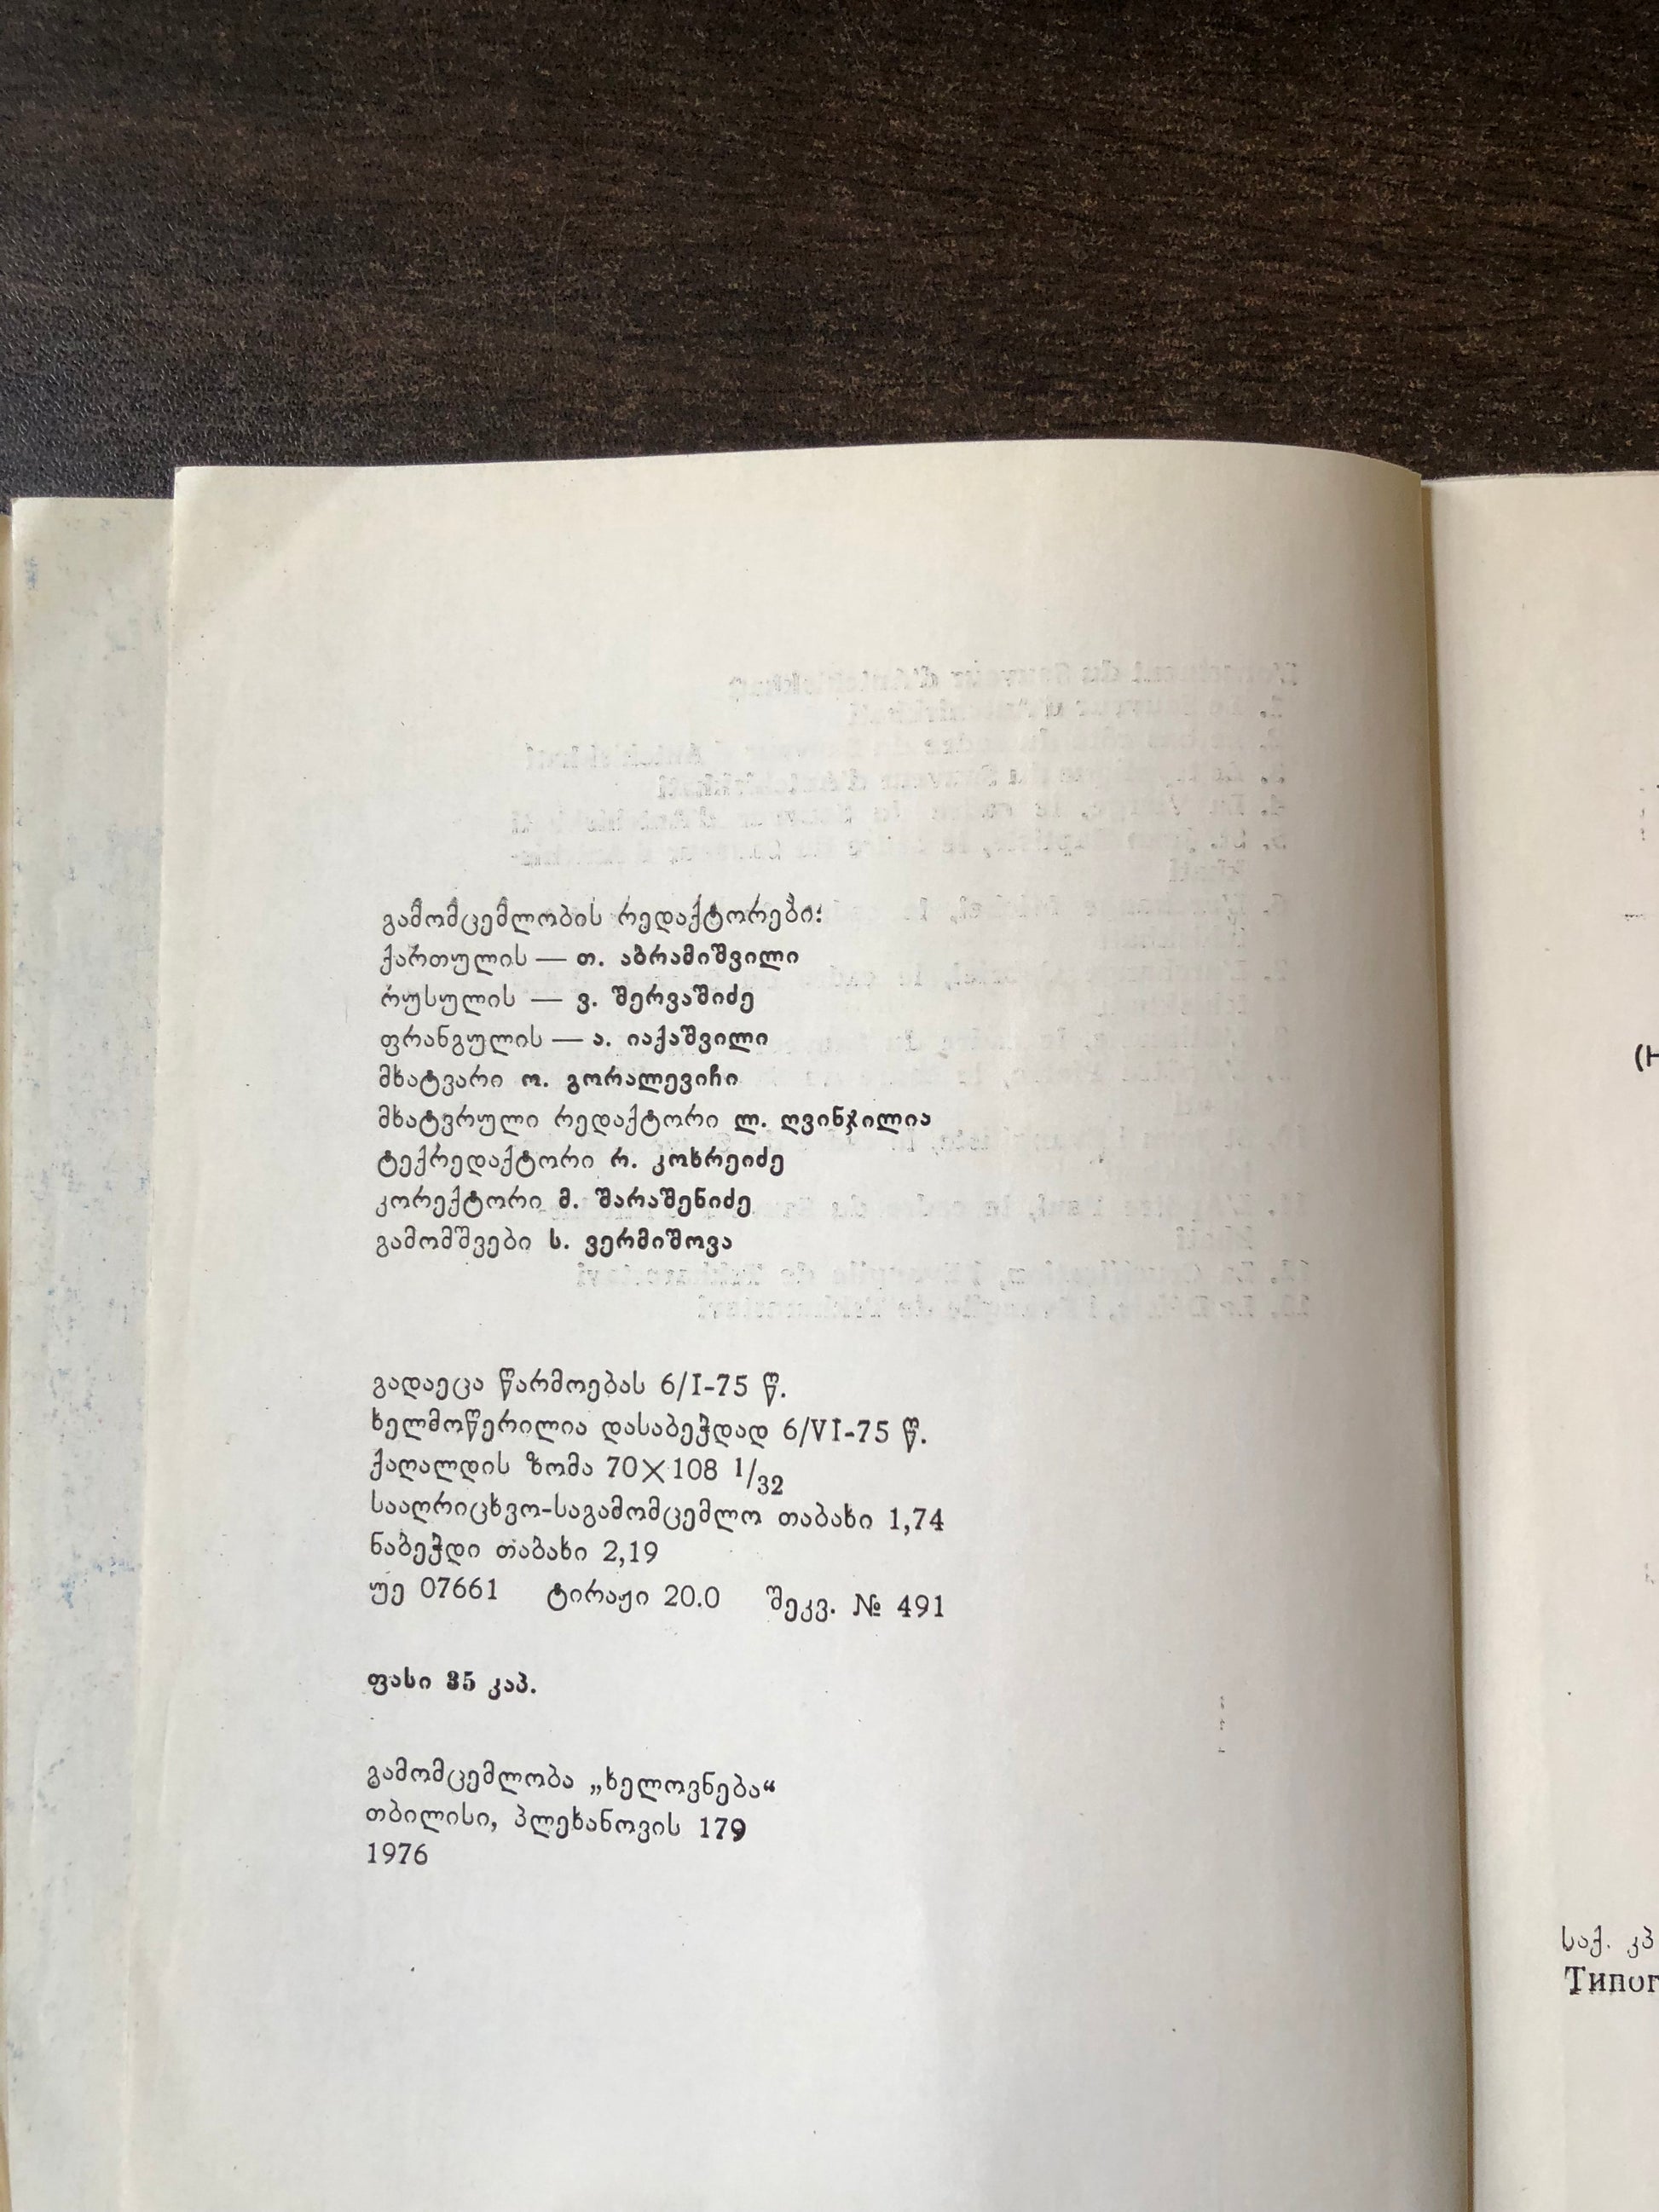 გამომცემლობის რედაქტორები:
ქართულის — თ. აბრამიშვილი
რუსულის — ვ. შერვაშიძე
ფრანგულის — ა. იაქაშვილი
მხატვარი ო. გორალევიჩი
მხატვრული რედაქტორი ლ. ღვინჯილია
ტექრედაქტორი რ. კოხრეიძე
კორექტორი მ. შარაშენიძე
გამომშვები ს. ვერმიშოვა
გადაეცა წარმოებას 6/I-75 წ.
ხელმოწერილია დასაბეჭდად 6/VI-75 წ.
ქაღალდის ზომა 70×108 1/32
სააღრიცხვო-საგამომცემლო თაბახი 1,74
ნაბეჭდი თაბახი 2,19
უე 07661 ტირაჟი 20.0 შეკვ. № 491
ფასი 35 კაპ.
გამომცემლობა „ხელოვნება“
თბილისი, პლეხანოვის 179
1976
საქ. კპ
Типог